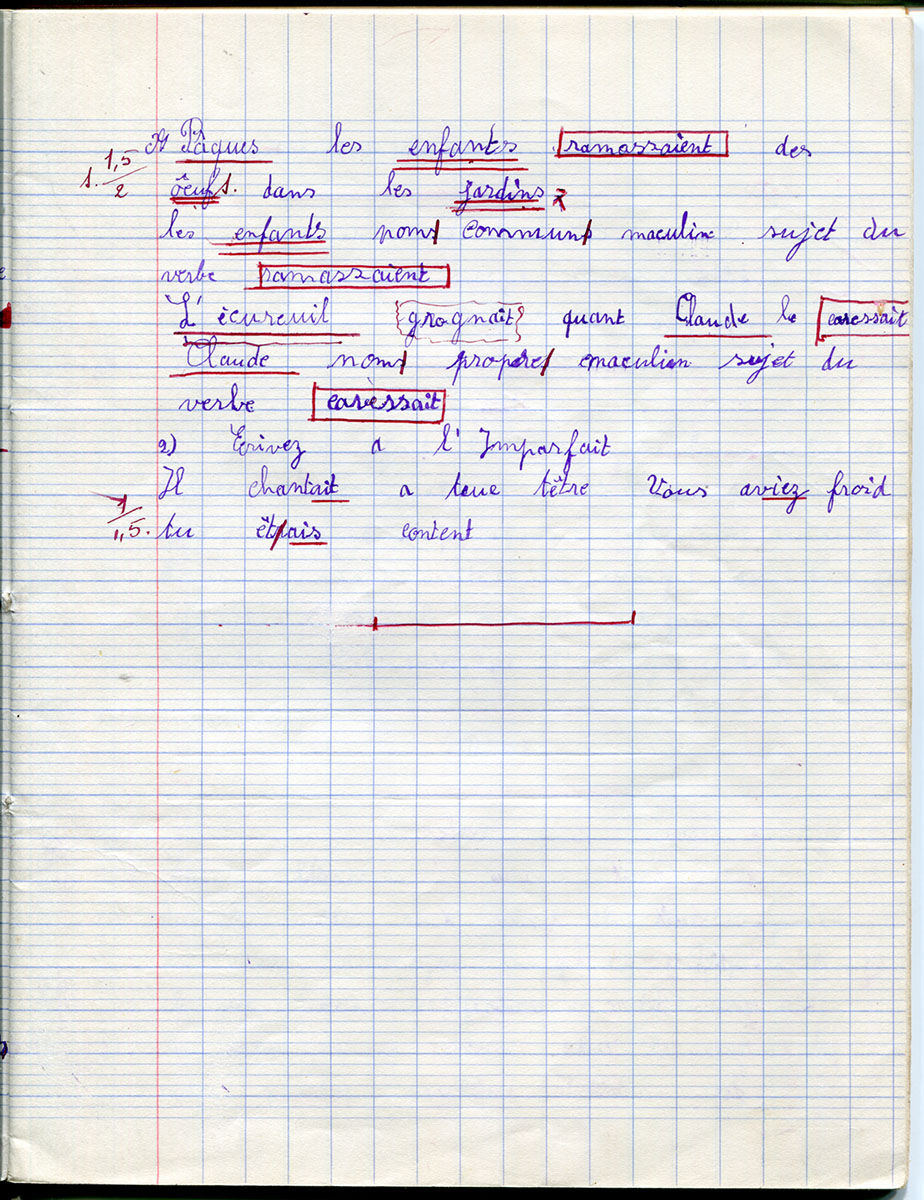 A Pâques les enfants ramassaient des
1. 1,5/2 oeufs. dans les jardins
les enfants noms communs maculin sujet du
verbe ramassaient
L'écureuil grognait quant Claude le caressait
Claude noms propres maculin sujet du
verbe caressait
2) Ecrivez a l'Imparfait
Il chantait a tue têtre Vous aviez froid
1/1,5. tu êtais content